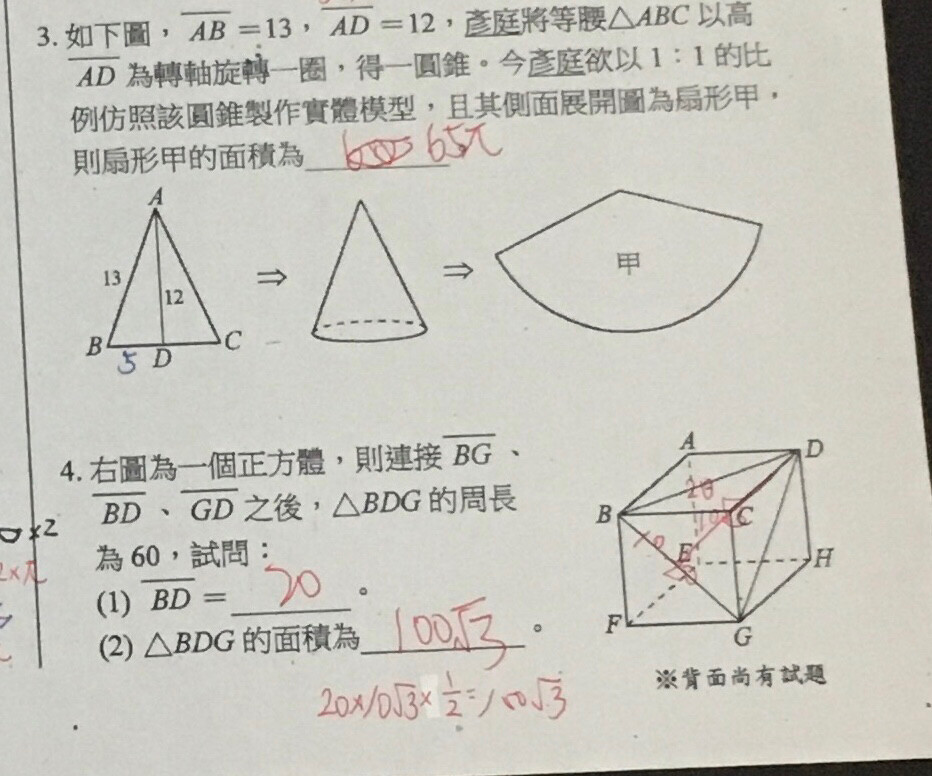 3. 如下圖，AB=13，AD=12，彥庭將等腰△ABC以高
AD為轉軸旋轉一圈，得一圓錐。今彥庭欲以1：1的比
例仿照該圓錐製作實體模型，且其側面展開圖為扇形甲，
則扇形甲的面積為 65π
A
13
12
B
5
D
C
⇒
⇒
甲
4. 右圖為一個正方體，則連接BG、
BD、GD之後，△BDG的周長
為60，試問：
(1) BD= 20 。
(2) △BDG的面積為 100√3 。
20×10√3×1/2=100√3
A
D
20
B
C
10
10
E
H
F
G
※背面尚有試題
×2
2×π